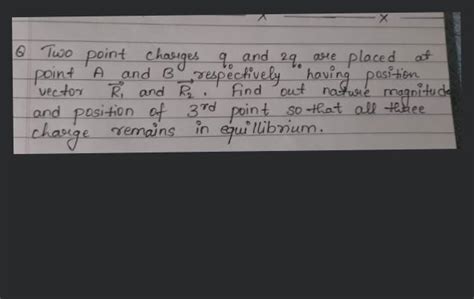 Q Two point charges q and 2q are placed at
point A and B respectively having position
vector R₁ and R₂. find out nature magnitude
and position of 3rd point so that all three
charge remains in equillibrium.